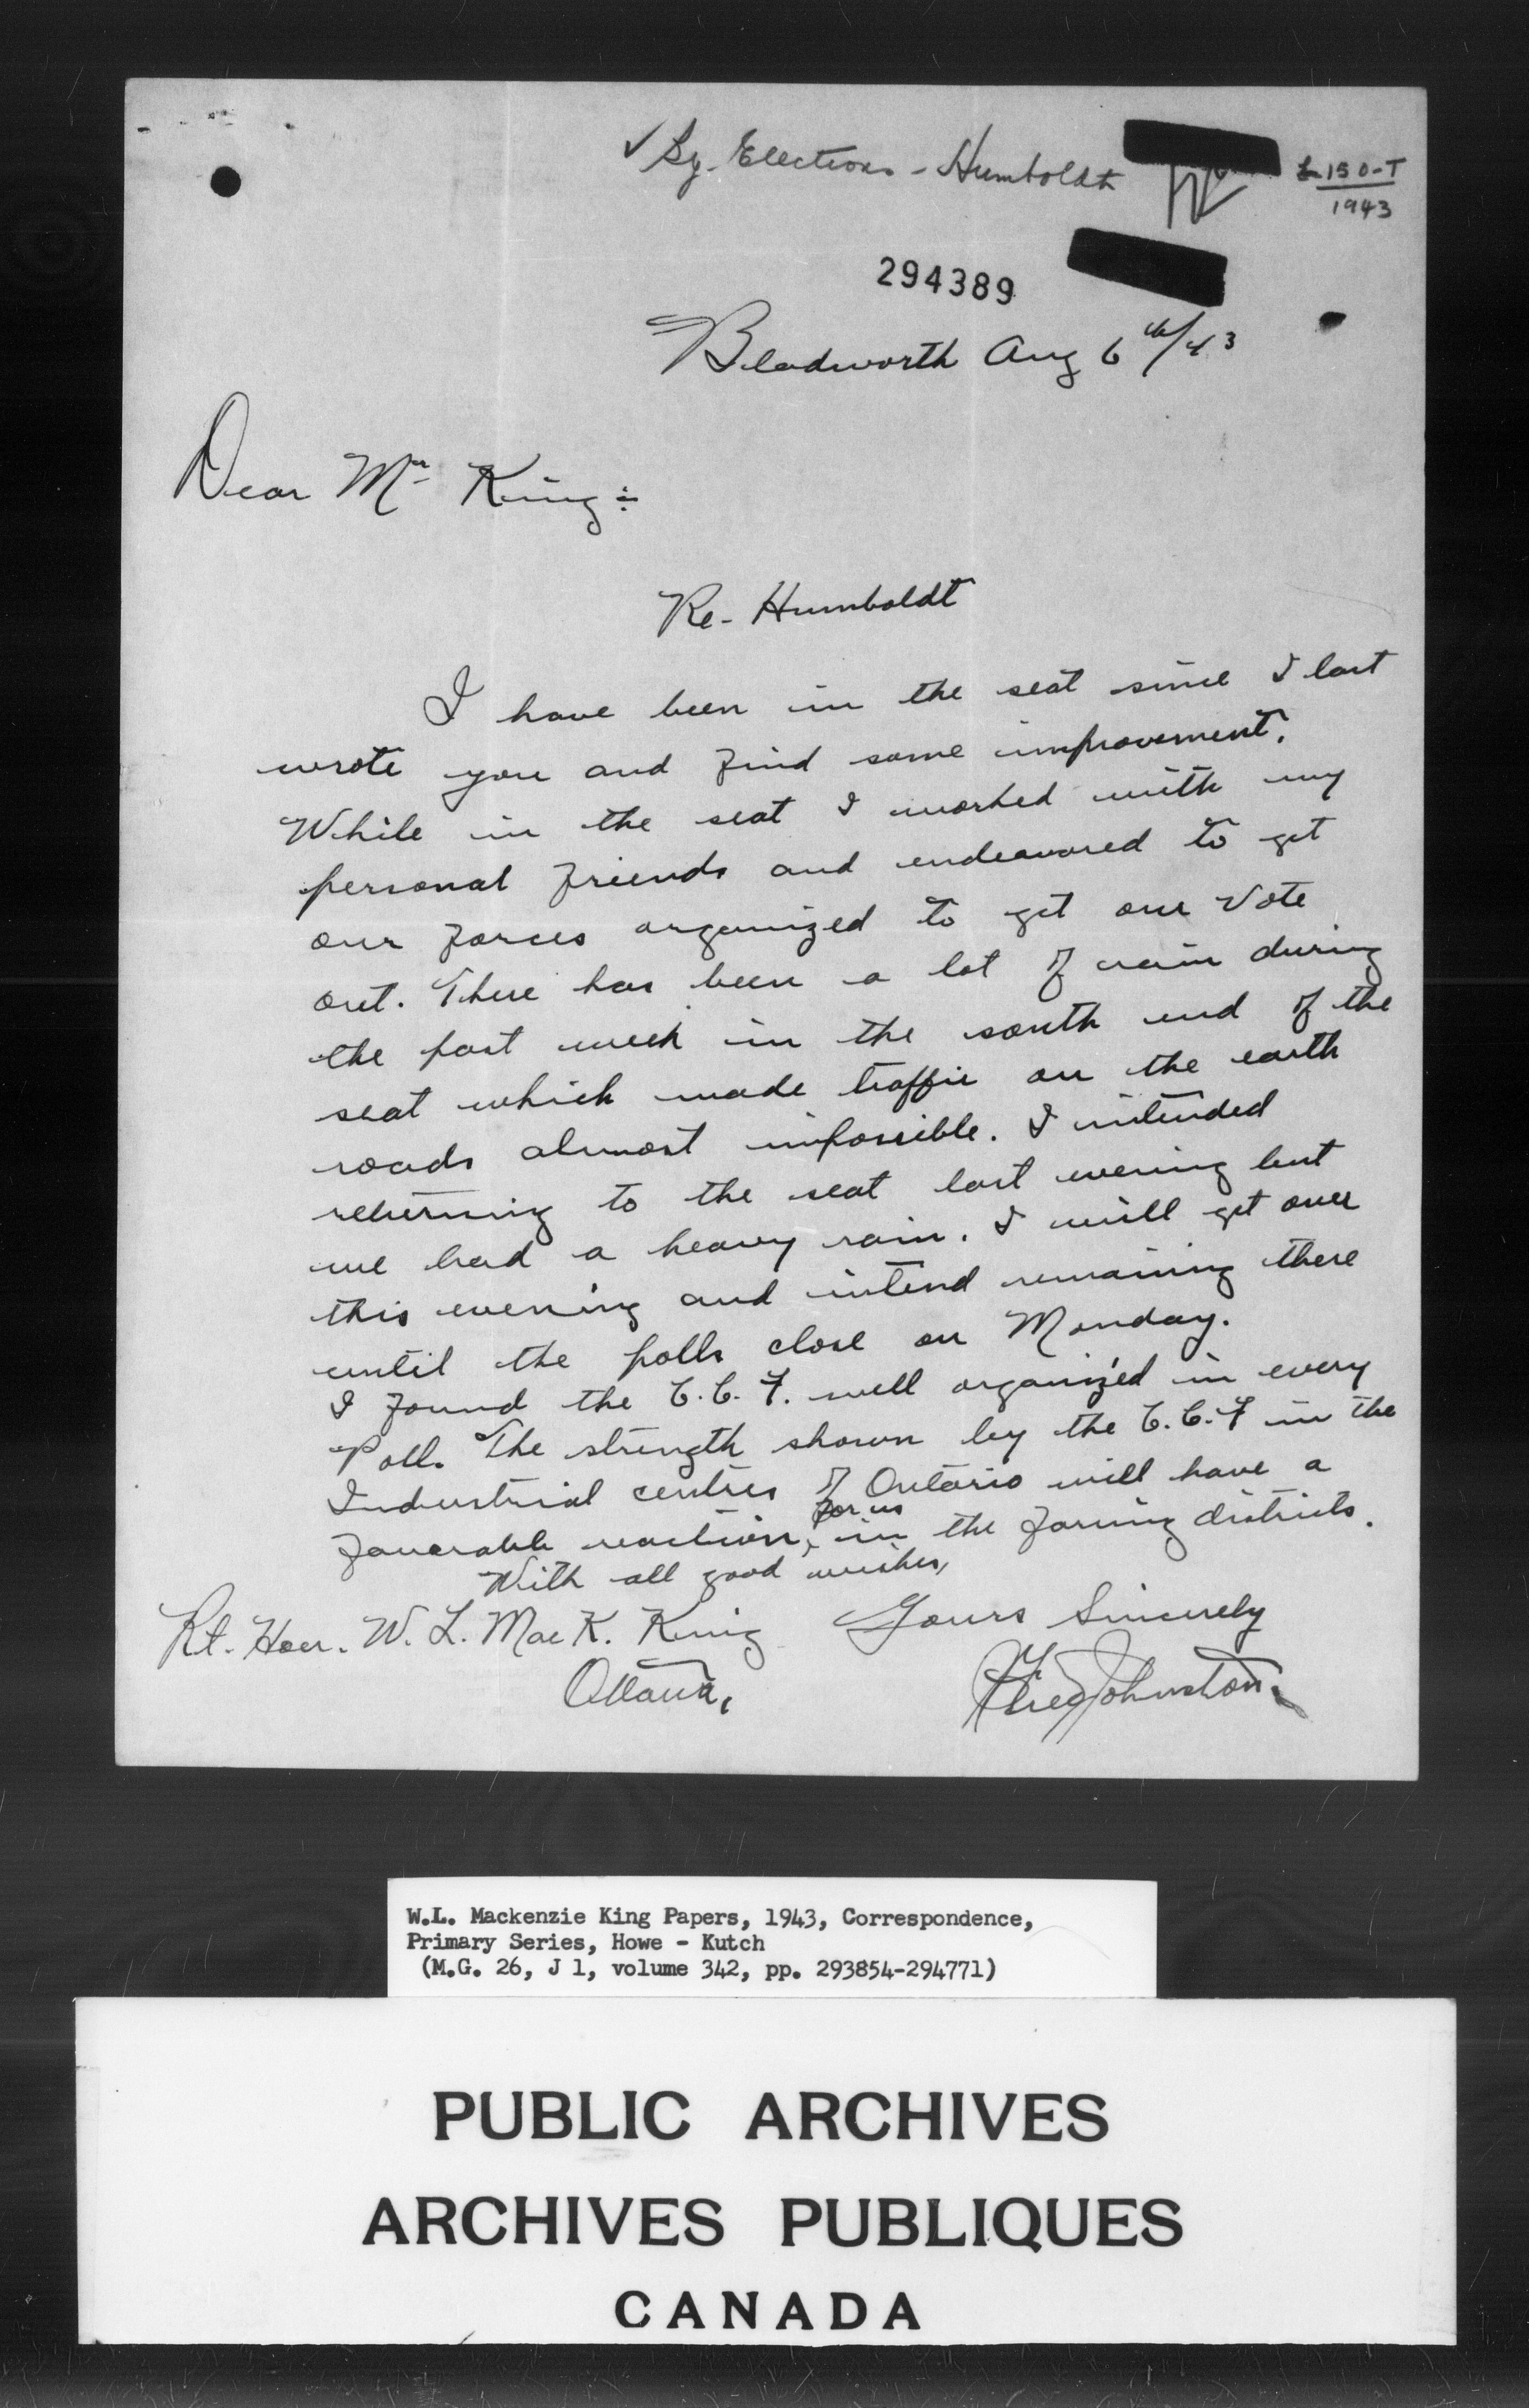 ✓ By-Elections - Humboldt
L-150-T
1943
294389
Bladworth Aug 6th/43
Dear Mr King:
Re- Humboldt
I have been in the seat since I last
wrote you and find some improvement.
While in the seat I worked with my
personal friends and endeavored to get
our forces organized to get our vote
out. There has been a lot of rain during
the past week in the south end of the
seat which made traffic on the earth
roads almost impossible. I intended
returning to the seat last evening but
we had a heavy rain. I will get over
this evening and intend remaining there
until the polls close on Monday.
I found the C.C.F. well organized in every
Poll. The strength shown by the C.C.F in the
Industrial centres of Ontario will have a
favorable reaction, for us in the farming districts.
With all good wishes,
Yours Sincerely
Rt. Hon. W. L. MacK. King
Ottawa,
Johnston.
W.L. Mackenzie King Papers, 1943, Correspondence,
Primary Series, Howe - Kutch
(M.G. 26, J 1, volume 342, pp. 293854-294771)
PUBLIC ARCHIVES
ARCHIVES PUBLIQUES
CANADA